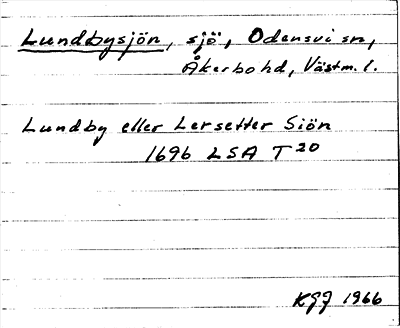 Lundbysjön, sjö, Odensvi sn,
Åkerbo hd, Västm. l.
Lundby eller Lersetter Siön
1696 LSA T 20
KGJ 1966